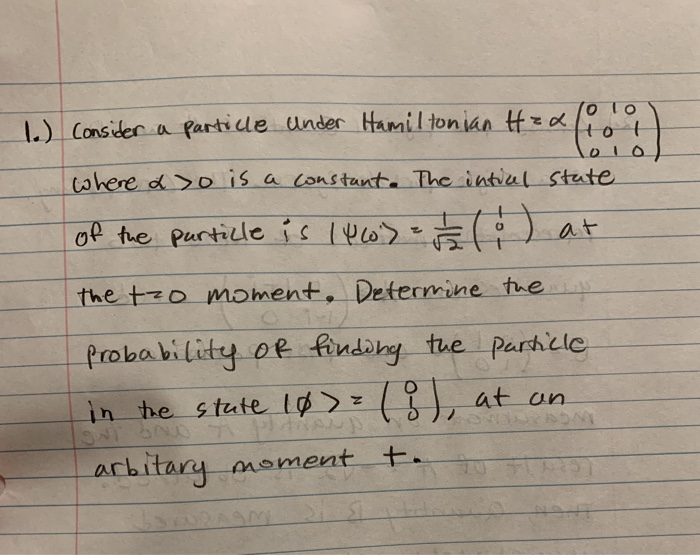 1.) Consider a particle under Hamiltonian H = α (0 1 0 / 1 0 1 / 0 1 0)
where α > 0 is a constant. The intial state
of the particle is |ψ(0)> = 1/√2 (1 / 0 / 1) at
the t=0 moment. Determine the
probability of finding the particle
in the state |φ> = (0 / 1 / 0), at an
arbitary moment t.